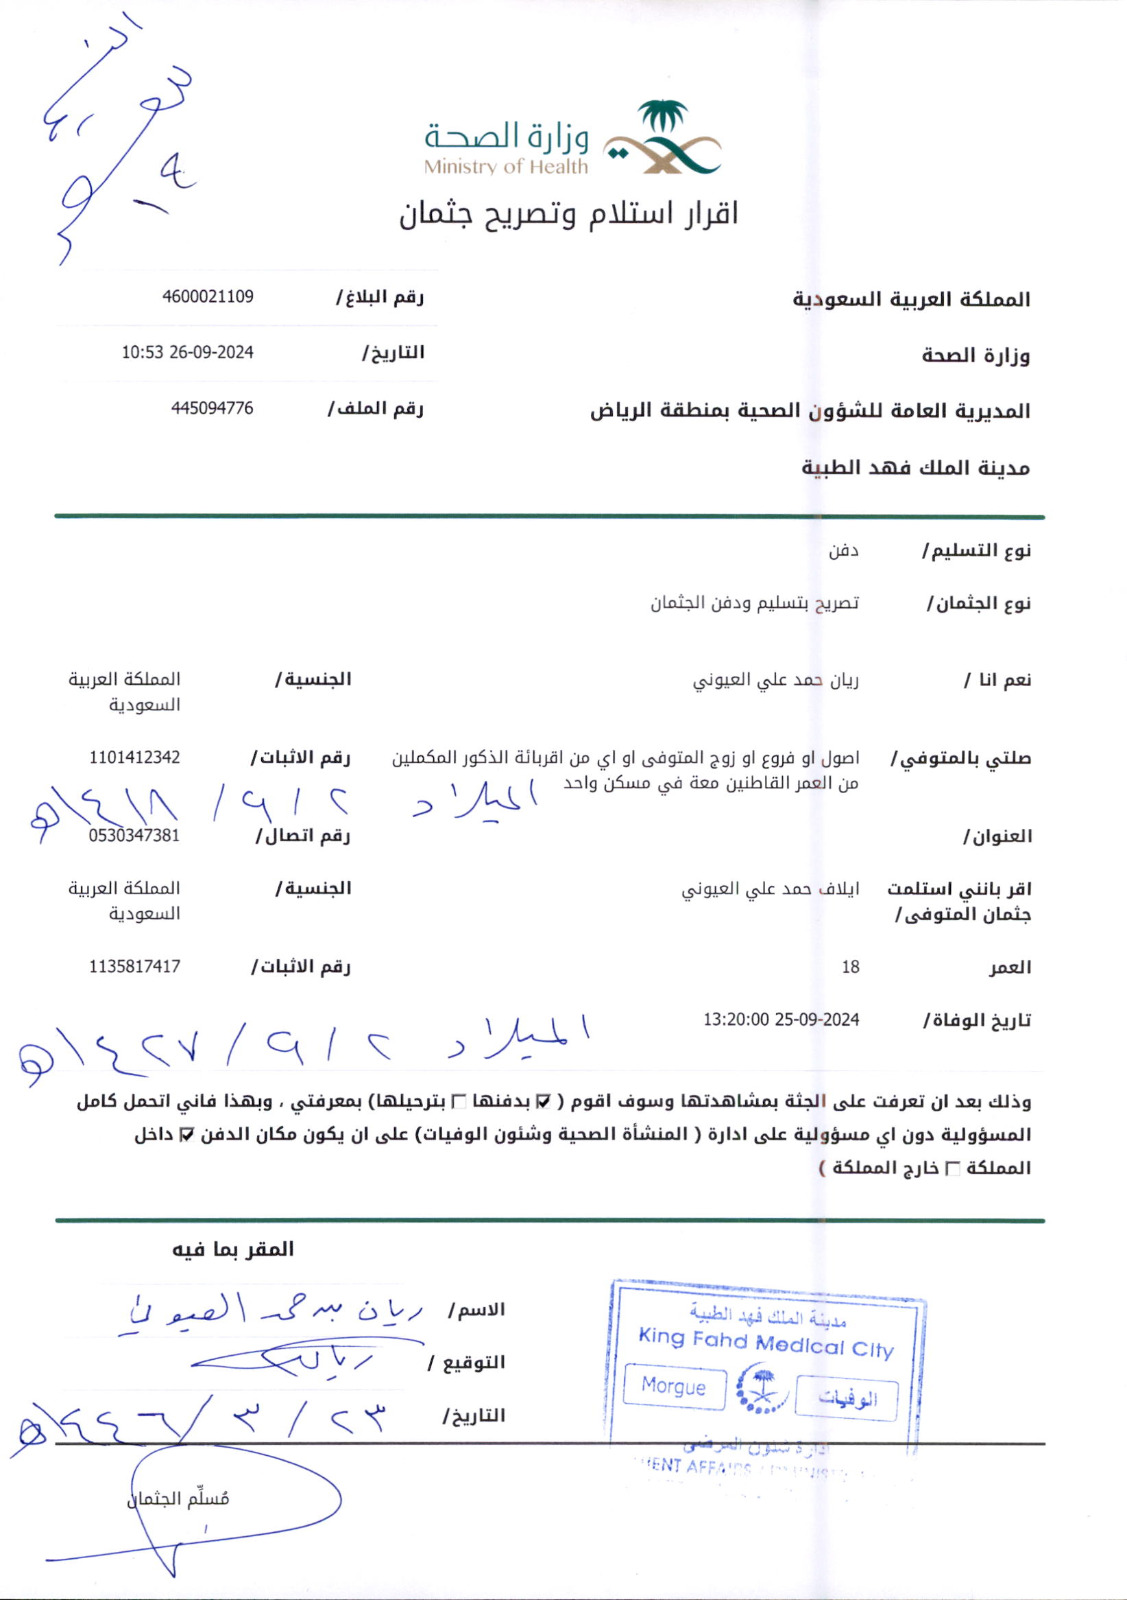 وزارة الصحة
Ministry of Health
اقرار استلام وتصريح جثمان
المملكة العربية السعودية
رقم البلاغ/ 4600021109
وزارة الصحة
التاريخ/ 26-09-2024 10:53
المديرية العامة للشؤون الصحية بمنطقة الرياض
رقم الملف/ 445094776
مدينة الملك فهد الطبية
نوع التسليم/ دفن
نوع الجثمان/ تصريح بتسليم ودفن الجثمان
نعم انا / ريان حمد علي العيوني
الجنسية/ المملكة العربية
السعودية
صلتي بالمتوفي/ اصول او فروع او زوج المتوفى او اي من اقربائة الذكور المكملين
من العمر القاطنين معة في مسكن واحد
رقم الاثبات/ 1101412342
الميلاد ٢ / ٩ / ١٤١٨هـ
العنوان/
رقم اتصال/ 0530347381
اقر بانني استلمت
جثمان المتوفى/ ايلاف حمد علي العيوني
الجنسية/ المملكة العربية
السعودية
العمر 18
رقم الاثبات/ 1135817417
تاريخ الوفاة/ 25-09-2024 13:20:00
الميلاد ٢ / ٩ / ١٤٢٧هـ
وذلك بعد ان تعرفت على الجثة بمشاهدتها وسوف اقوم ( ☑ بدفنها ☐ بترحيلها) بمعرفتي ، وبهذا فاني اتحمل كامل
المسؤولية دون اي مسؤولية على ادارة ( المنشأة الصحية وشئون الوفيات) على ان يكون مكان الدفن ☑ داخل
المملكة ☐ خارج المملكة )
المقر بما فيه
الاسم/ ريان بن حمد العيوني
التوقيع / ريان
التاريخ/ ٢٣ / ٣ / ١٤٤٦هـ
مُسلِّم الجثمان
مدينة الملك فهد الطبية
King Fahd Medical City
Morgue
الوفيات
ادارة شئون المرضى